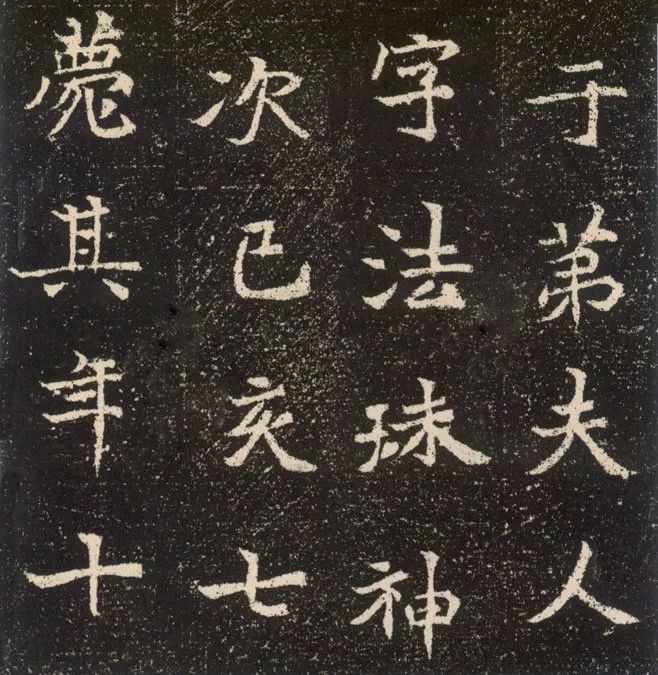 于弟夫人
字法珠神
次己亥七
薨其年十